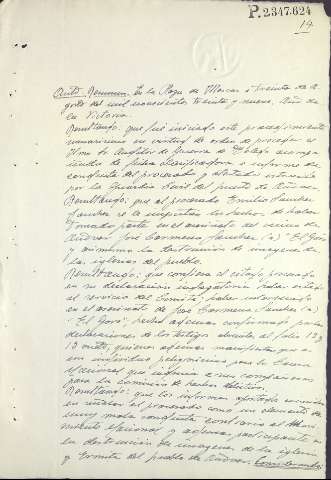 P.2347.624
14
Auto Resumen. En la Plaza de Illescas a treinta de A-
gosto de mil novecientos treinta y nueve, Año de
la Victoria.
Resultando: que fué iniciado este procedimiento
sumarisimo en virtud de orden de proceder del
Iltmo Sr. Auditor de Guerra de Toledo acompa-
ñando de ficha clasificadora e informe de
conducta del procesado y atestado instruido
por la Guardia Civil del puesto de Añover.
Resultando: que al procesado Emilio Sanchez
Sanchez se le imputan los hechos de haber
tomado parte en el asesinato del vecino de
Añover Jose Carmena Sanchez (a) "El Govo"
y asimismo la destruccion de imagenes de
las iglesias del pueblo.
Resultando: que confiesa el citado procesado
en su declaracion indagatoria haber estado
al servicio del Comité, haber intervenido
en el asesinato de Jose Carmena Sanchez (a)
"El Govo", hechos ademas confirmados por las
declaraciones de los testigos obrantes al folio 12 y
13 vuelto, quienes ademas manifiestan que es
un individuo peligrosisimo para la Causa
Nacional que inducia a sus compañeros
para la comision de hechos delictivos.
Resultando: que los informes aportados coinciden
en señalar al procesado como un elemento de
muy mala conducta contrario al Movi-
miento Nacional y ademas, participante en
la destruccion de imagenes de la iglesia
y Ermita del pueblo de Añover. Considerando: